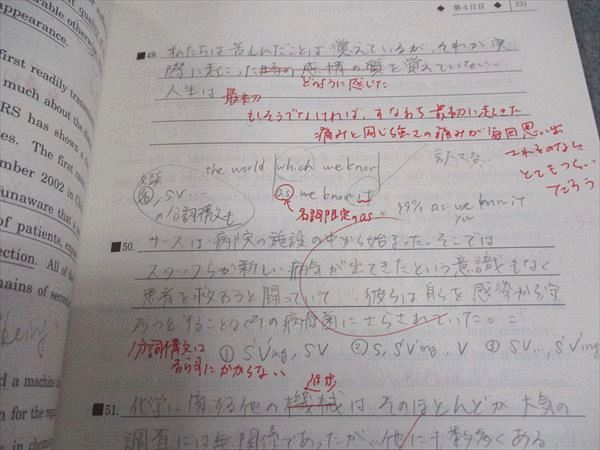 第4日目 131
able otherwi
appearance.
first readily transm
much about the dise
RS has shown
es. The first case
mber 2002 in C
unaware that a
of patients, expo
ection. All of the
hains of second
d a machine
n for the
in chem
49. 私たちは苦しんだことは覚えているが、それが実
際に起こった時の感情の質を覚えていない。
どのように感じた
人生は 最初の
もしそうでなければ、すなわち最初に起きた
痛みと同じ強さの痛みが毎回思い出
されるのなら
とてもつらい
だろう
the world which we know
as we know it
名詞限定のas
99% as we know it
you
, SV…
の分詞構文も
50. サーズは病院の施設の中から始まった。そこでは
スタッフらが新しい病気が出てきたという意識もなく
患者を救おうと闘っていて、彼らは自らを感染から守
ろうとすることなくその病原菌にさらされていた。
分詞構文は
① S'V'ing, SV ② S, S'V'ing, V ③ SV…, S'V'ing
名詞にかからない
51. 化学に関する他の機械は、そのほとんどが大気の
調査には無関係であったが、他にも数多くある